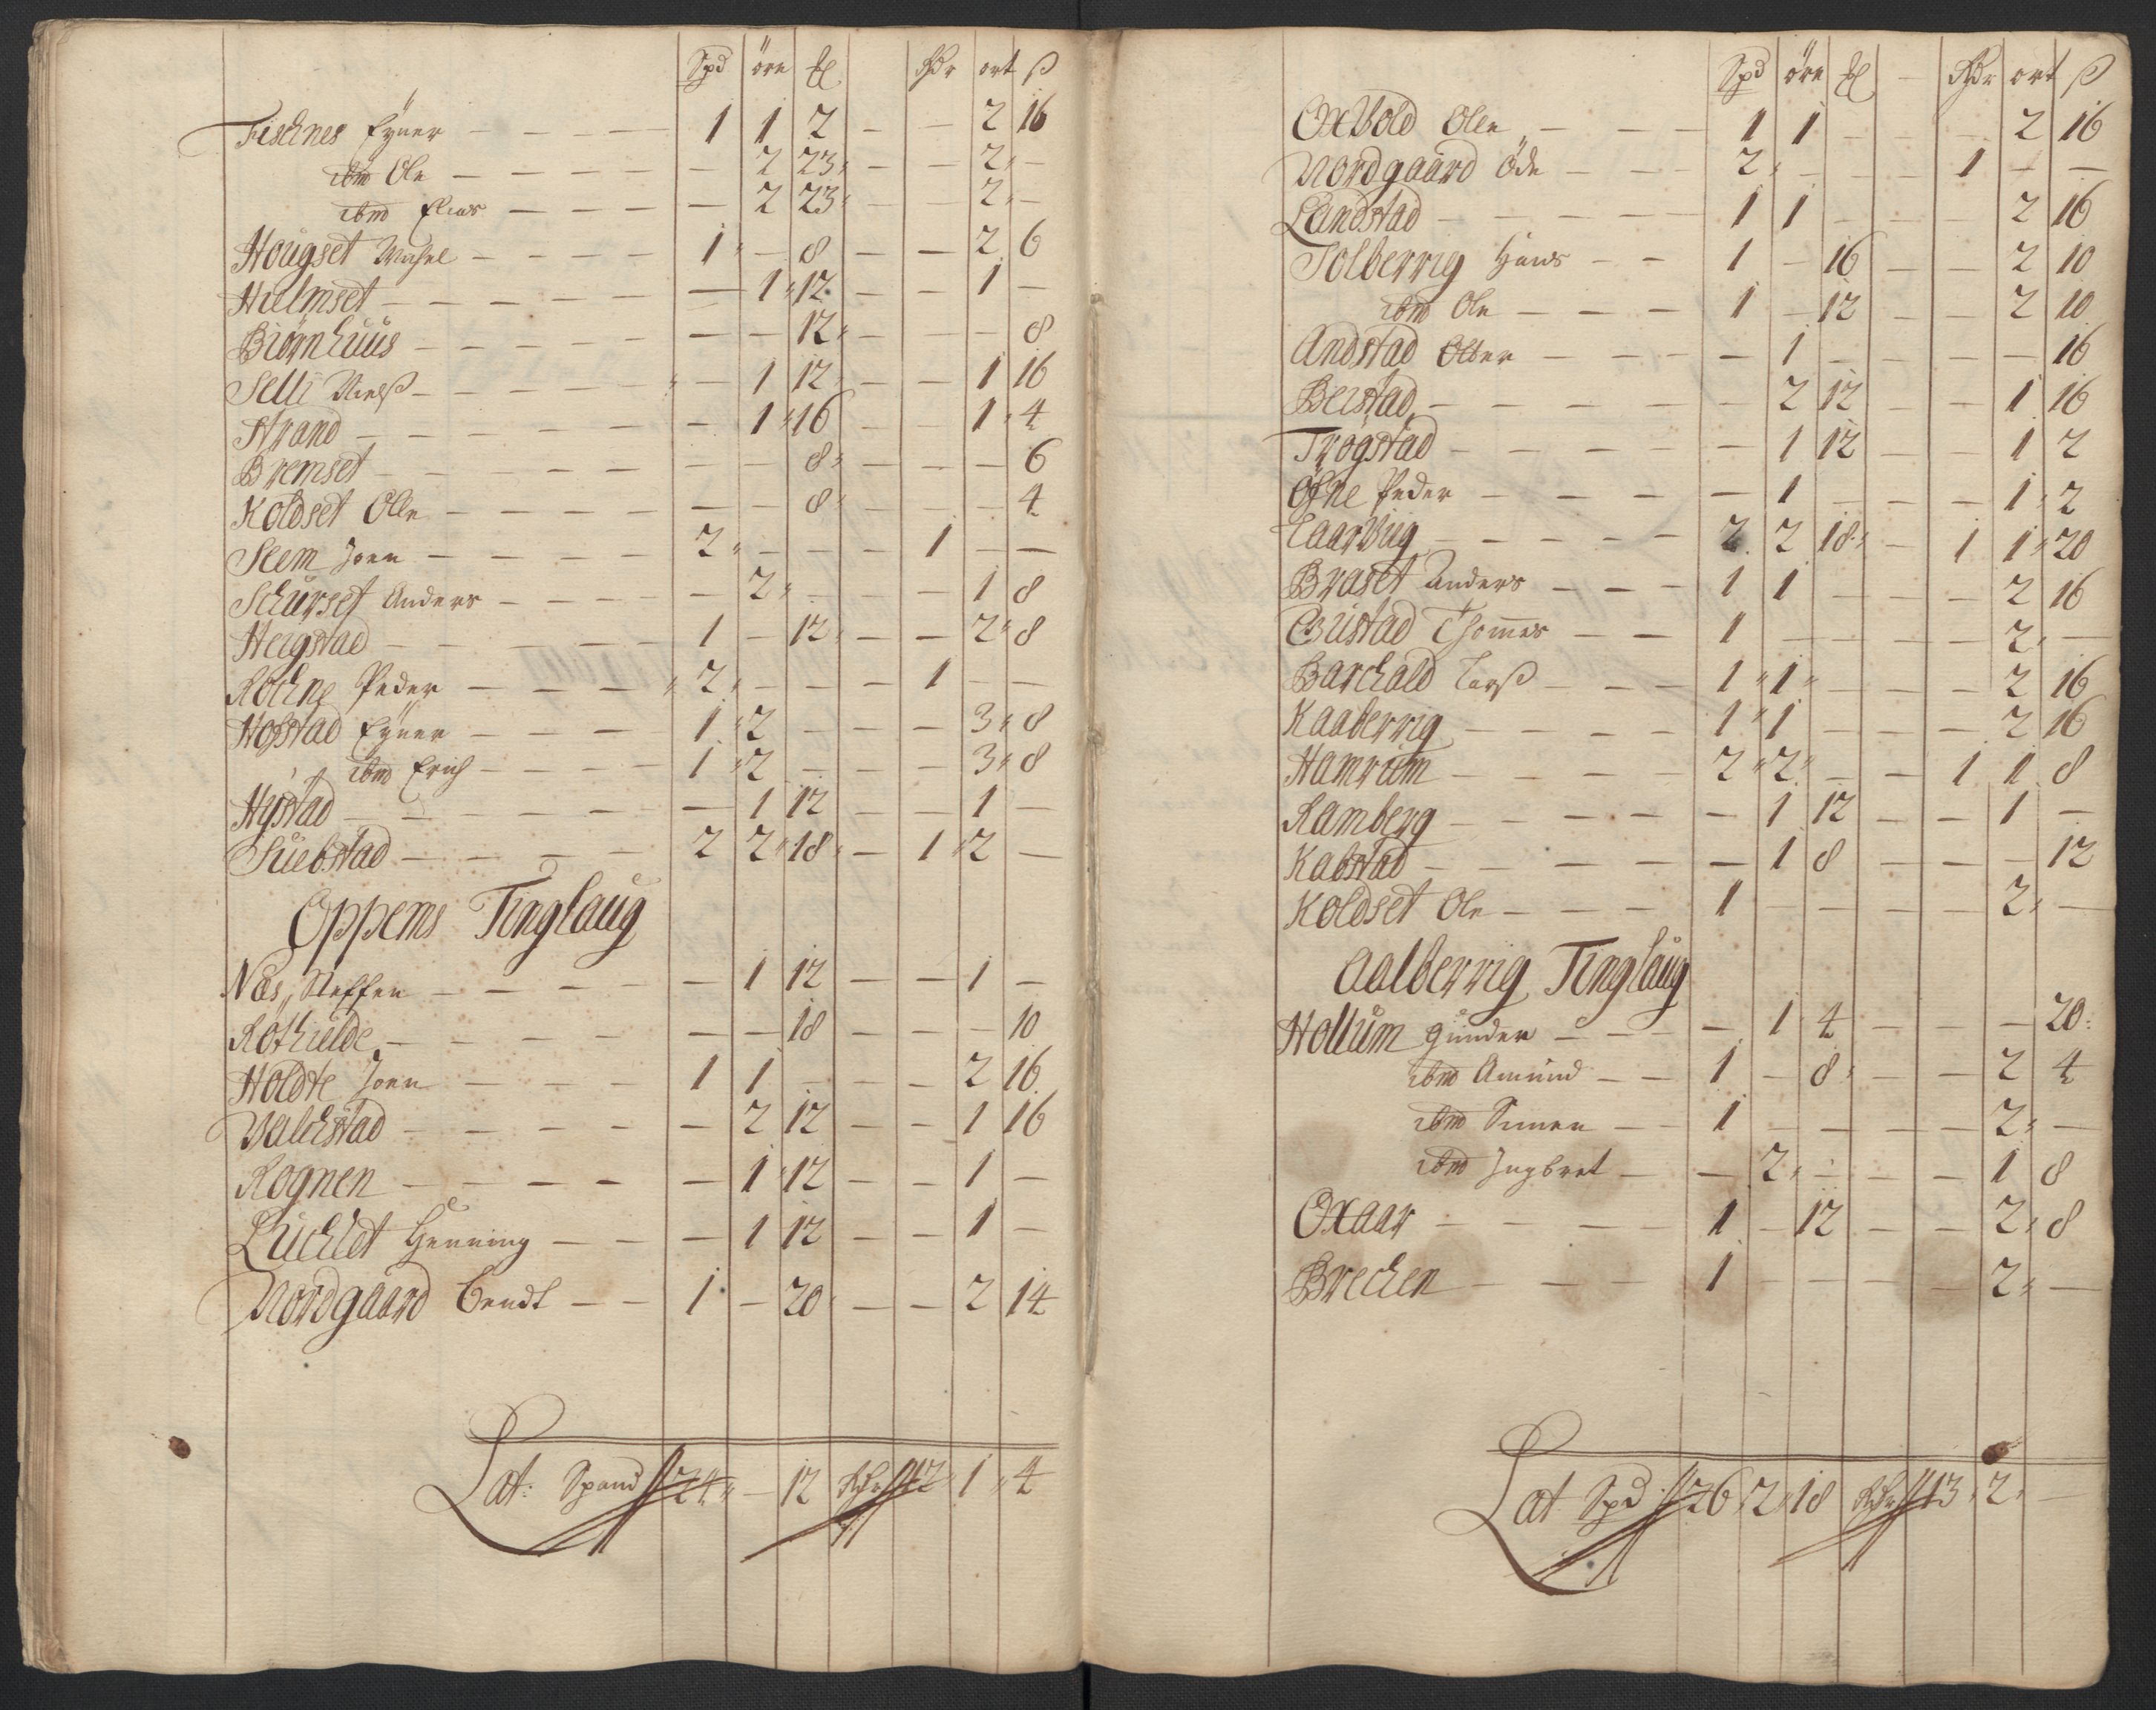 Spd öre ₰ Rdr ort ß
Fischnes Eyner — 1 1 2 — — 2 16
ibm Ole — — 2 23 — — 2 —
ibm Elias — — 2 23 — — 2 —
Hougset Michel — 1 — 8 — — 2 6
Hulmset — — 1 12 — — 1 —
Biörnhuus — — — 12 — — — 8
Selli Nielß — — 1 12 — — 1 16
Strand — — 1 16 — — 1 4
Bremset — — — 8 — — — 6
Koldset Olle — — — 8 — — — 4
Seem Joen — 2 — — — 1 — —
Schurset Anders — — 2 — — — 1 8
Hergstad — 1 — 12 — — 2 8
Rothne Peder — 2 — — — 1 — —
Hofstad Eyner — 1 2 — — — 3 8
ibm Erich — 1 2 — — — 3 8
Hystad — — 1 12 — — 1 —
Suebstad — 2 2 18 — 1 2 —
Oppems Tinglaug
Næs, Steffen — — 1 12 — — 1 —
Rothielde — — — 18 — — — 10
Holdte Joen — 1 1 — — — 2 16
Walchstad — — 2 12 — — 1 16
Rognen — — 1 12 — — 1 —
Luchlet Henning — — 1 12 — — 1 —
Nordgaard Bendt — 1 — 20 — — 2 14
Lat: Spand 24 — 12 Rdr 12 1 4
Spd öre ₰ — Rdr ort ß
Oxvold Olle — 1 1 — — — 2 16
Nordgaard öde — 2 — — — 1 — —
Landstad — 1 1 — — — 2 16
Solberrig Hans — 1 — 16 — — 2 10
ibm Ole — 1 — 12 — — 2 10
Andstad — — 1 — — — — 16
Beistad — — 2 12 — — 1 16
Trøgstad — — 1 12 — — 1 2
Öfne Peder — — 1 — — — 1 2
Laarviig — 2 2 18 — 1 1 20
Braset Anders — 1 1 — — — 2 16
Thommes — 1 — — — — 2 —
Barchald Larß — 1 1 — — — 2 16
Kaaberrig — 1 1 — — — 2 16
Hamrum — 2 2 — — 1 1 8
Ramberg — — 1 12 — — 1 —
Kabstad — — 1 8 — — — 12
Koldset Ole — 1 — — — — 2 —
Aalberrig Tinglaug
Hollum Gunder — — 1 4 — — 20
ibm Amund — 1 — 8 — — 2 4
ibm Simen — 1 — — — — 2 —
ibm Ingbret — — 2 — — — 1 8
Oxaar — 1 — 12 — — 2 8
Brechen — 1 — — — — 2 —
Lat Spd 26 2 18 Rdr 13 2 —